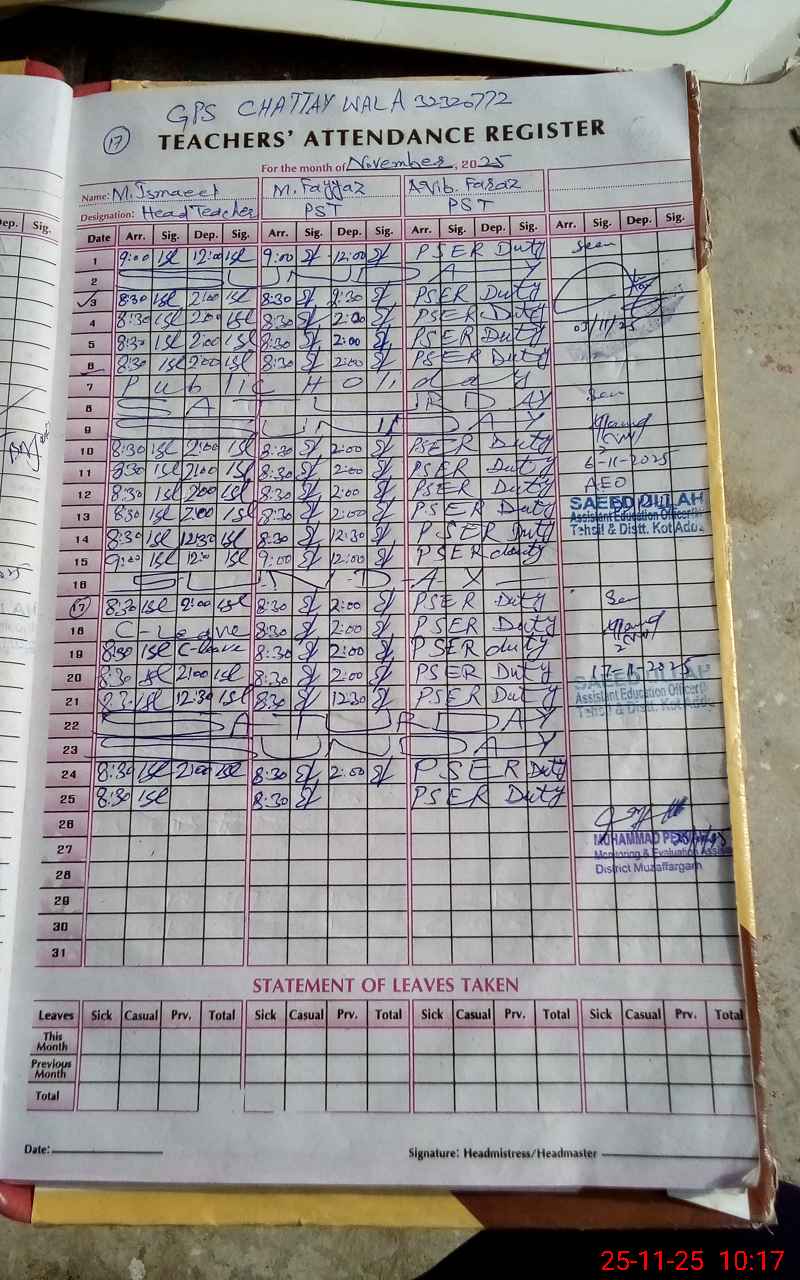 GPS CHATTAY WALA 32320772
17 TEACHERS' ATTENDANCE REGISTER
For the month of November, 2025
Name: M. Ismaeel M. Fayyaz Faraz
Designation: Head Teacher PST PST
Dep. Sig.
Date Arr. Sig. Dep. Sig. Arr. Sig. Dep. Sig. Arr. Sig. Dep. Sig. Arr. Sig. Dep. Sig.
1 9:00 12:00 9:00 12:00 PSER Duty Seen
2 SUNDAY
3 8:30 2:00 8:30 2:30 PSER Duty
4 8:30 2:00 8:30 2:00 PSER Duty
03/11/25
5 8:30 2:00 8:30 2:00 PSER Duty
6 8:30 2:00 8:30 2:00 PSER Duty
7 Public Holiday
8 SATURDAY
9 SUNDAY
10 8:30 2:00 8:30 2:00 PSER Duty
11 8:30 2:00 8:30 2:00 PSER Duty 6-11-2025
12 8:30 2:00 8:30 2:00 PSER Duty AEO
SAEED ULLAH
13 8:30 2:00 8:30 2:00 PSER Duty Assistant Education Officer
Tehsil & Distt. Kot Addu
14 8:30 12:30 8:30 12:30 PSER Duty
15 9:00 12:00 9:00 12:00 PSER duty
16 SUNDAY
17 8:30 2:00 8:30 2:00 PSER Duty
18 C-Leave 8:30 2:00 PSER Duty
19 8:30 C-leave 8:30 2:00 PSER duty
20 8:30 2:00 8:30 2:00 PSER Duty 17-11-2025
21 12:30 8:30 12:30 PSER Duty Assistant Education Officer
Tehsil & Distt. Kot Addu
22 SATURDAY
23 SUNDAY
24 8:30 2:00 8:30 2:00 PSER Duty
25 8:30 8:30 PSER Duty
26
27 MUHAMMAD
Monitoring & Evaluation
28 District Muzaffargarh
29
30
31
STATEMENT OF LEAVES TAKEN
Leaves Sick Casual Prv. Total Sick Casual Prv. Total Sick Casual Prv. Total Sick Casual Prv. Total
This Month
Previous Month
Total
Date: Signature: Headmistress/Headmaster
25-11-25 10:17